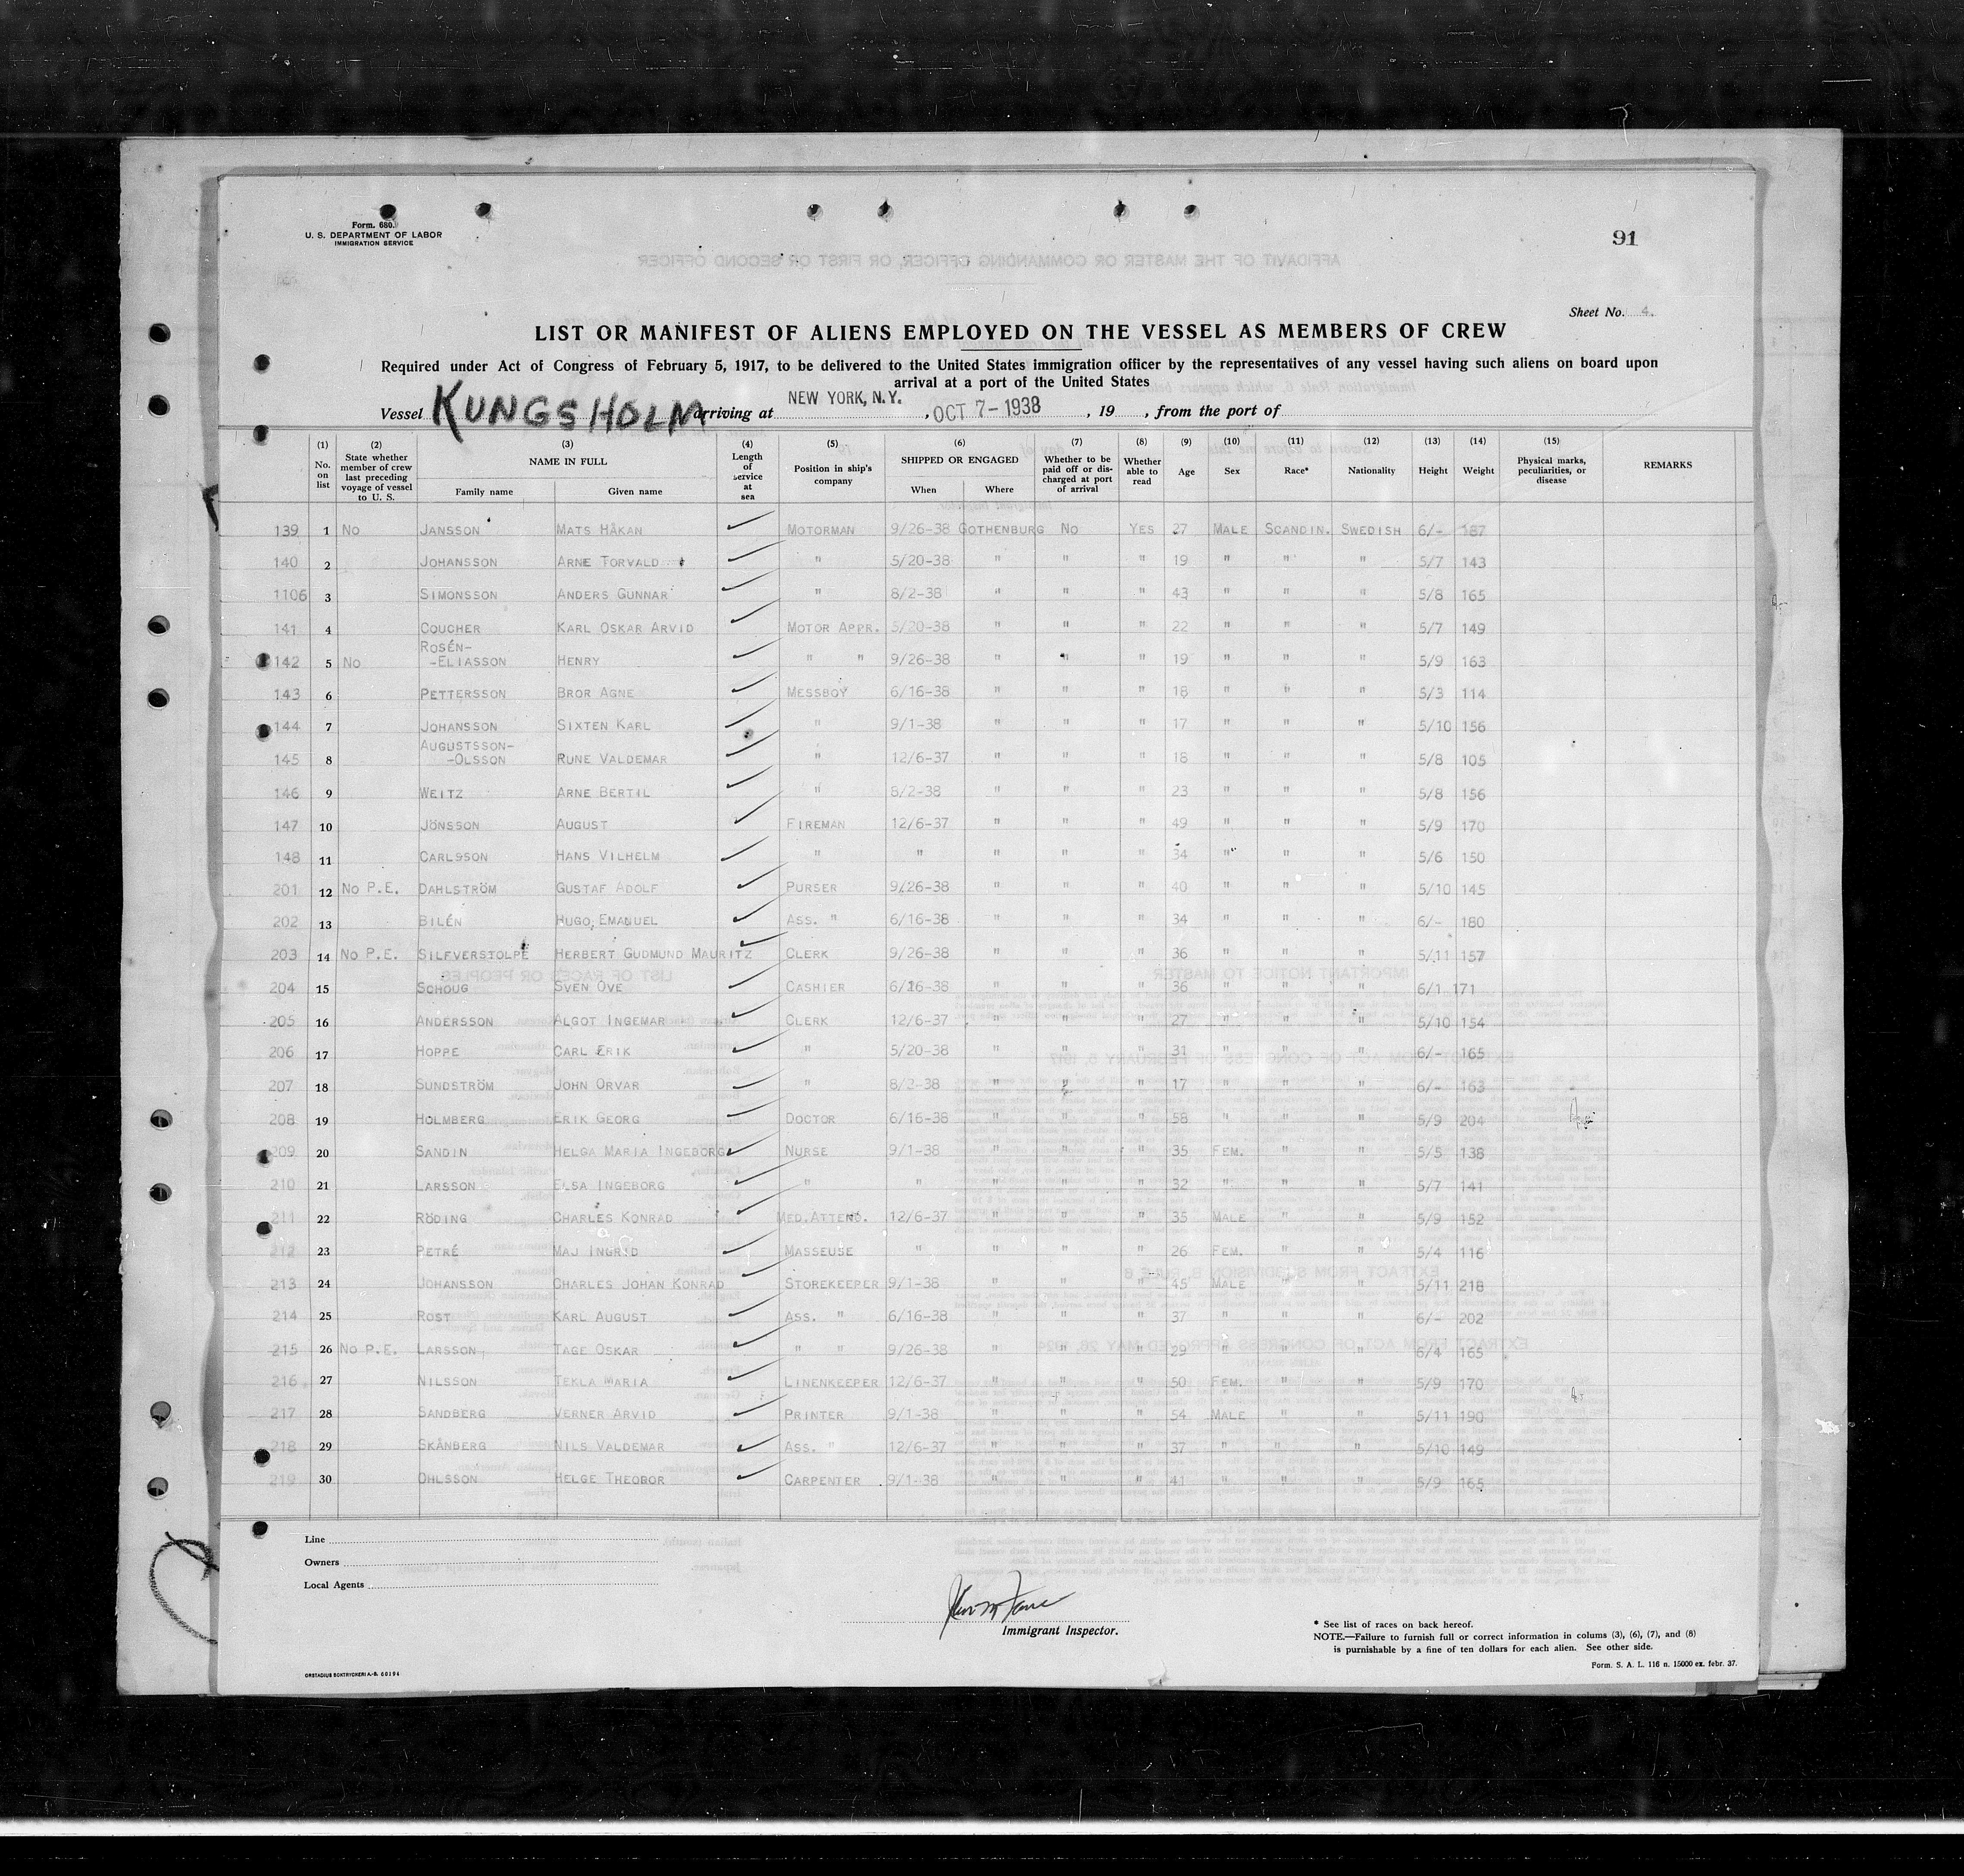 Form. 680.
U. S. DEPARTMENT OF LABOR
IMMIGRATION SERVICE
91
Sheet No. 4.
LIST OR MANIFEST OF ALIENS EMPLOYED ON THE VESSEL AS MEMBERS OF CREW
Required under Act of Congress of February 5, 1917, to be delivered to the United States immigration officer by the representatives of any vessel having such aliens on board upon
arrival at a port of the United States
Vessel KUNGSHOLM arriving at NEW YORK, N.Y. , OCT 7-1938 , 19 , from the port of
(1) No. on list (2) State whether member of crew last preceding voyage of vessel to U. S. (3) NAME IN FULL Family name Given name (4) Length of service at sea (5) Position in ship's company (6) SHIPPED OR ENGAGED When Where (7) Whether to be paid off or discharged at port of arrival (8) Whether able to read (9) Age (10) Sex (11) Race* (12) Nationality (13) Height (14) Weight (15) Physical marks, peculiarities, or disease REMARKS
139 1 No JANSSON MATS HÅKAN MOTORMAN 9/26-38 GOTHENBURG No YES 27 MALE SCANDIN. SWEDISH 6/- 187
140 2 JOHANSSON ARNE TORVALD " 5/20-38 " " " 19 " " " 5/7 143
1106 3 SIMONSSON ANDERS GUNNAR " 8/2-38 " " " 43 " " " 5/8 165
141 4 COUCHER KARL OSKAR ARVID MOTOR APPR. 5/20-38 " " " 22 " " " 5/7 149
142 5 No ROSÉN--ELIASSON HENRY " " 9/26-38 " " " 19 " " " 5/9 163
143 6 PETTERSSON BROR AGNE MESSBOY 6/16-38 " " " 18 " " " 5/3 114
144 7 JOHANSSON SIXTEN KARL " 9/1-38 " " " 17 " " " 5/10 156
145 8 AUGUSTSSON--OLSSON RUNE VALDEMAR " 12/6-37 " " " 18 " " " 5/8 105
146 9 WEITZ ARNE BERTIL " 8/2-38 " " " 23 " " " 5/8 156
147 10 JÖNSSON AUGUST FIREMAN 12/6-37 " " " 49 " " " 5/9 170
148 11 CARLSSON HANS VILHELM " " " " " 34 " " " 5/6 150
201 12 No P.E. DAHLSTRÖM GUSTAF ADOLF PURSER 9/26-38 " " " 40 " " " 5/10 145
202 13 BILÉN HUGO EMANUEL ASS. " 6/16-38 " " " 34 " " " 6/- 180
203 14 No P.E. SILFVERSTOLPE HERBERT GUDMUND MAURITZ CLERK 9/26-38 " " " 36 " " " 5/11 157
204 15 SCHOUG SVEN OVE CASHIER 6/16-38 " " " 36 " " " 6/1 171
205 16 ANDERSSON ALGOT INGEMAR CLERK 12/6-37 " " " 27 " " " 5/10 154
206 17 HOPPE CARL ERIK " 5/20-38 " " " 31 " " " 6/- 165
207 18 SUNDSTRÖM JOHN ORVAR " 8/2-38 " " " 17 " " " 6/- 163
208 19 HOLMBERG ERIK GEORG DOCTOR 6/16-38 " " " 58 " " " 5/9 204
209 20 SANDIN HELGA MARIA INGEBORG NURSE 9/1-38 " " " 35 FEM. " " 5/5 138
210 21 LARSSON ELSA INGEBORG " " " " " 32 " " " 5/7 141
211 22 RÖDING CHARLES KONRAD MED.ATTEND. 12/6-37 " " " 35 MALE " " 5/9 152
212 23 PETRÉ MAJ INGRID MASSEUSE " " " " 26 FEM. " " 5/4 116
213 24 JOHANSSON CHARLES JOHAN KONRAD STOREKEEPER 9/1-38 " " " 45 MALE " " 5/11 218
214 25 ROST KARL AUGUST ASS. " 6/16-38 " " " 37 " " " 6/- 202
215 26 No P.E. LARSSON TAGE OSKAR " " 9/26-38 " " " 29 " " " 6/4 165
216 27 NILSSON TEKLA MARIA LINENKEEPER 12/6-37 " " " 50 FEM. " " 5/9 170
217 28 SANDBERG VERNER ARVID PRINTER 9/1-38 " " " 54 MALE " " 5/11 190
218 29 SKÅNBERG NILS VALDEMAR ASS. " 12/6-37 " " " 37 " " " 5/10 149
219 30 OHLSSON HELGE THEODOR CARPENTER 9/1-38 " " " 41 " " " 5/9 165
Line
Owners
Local Agents
Immigrant Inspector.
* See list of races on back hereof.
NOTE.—Failure to furnish full or correct information in colums (3), (6), (7), and (8)
is purnishable by a fine of ten dollars for each alien. See other side.
ORSTADIUS BOKTRYCKERI A.-B. 60194
Form. S. A. L. 116 n. 15000 ex. febr. 37.